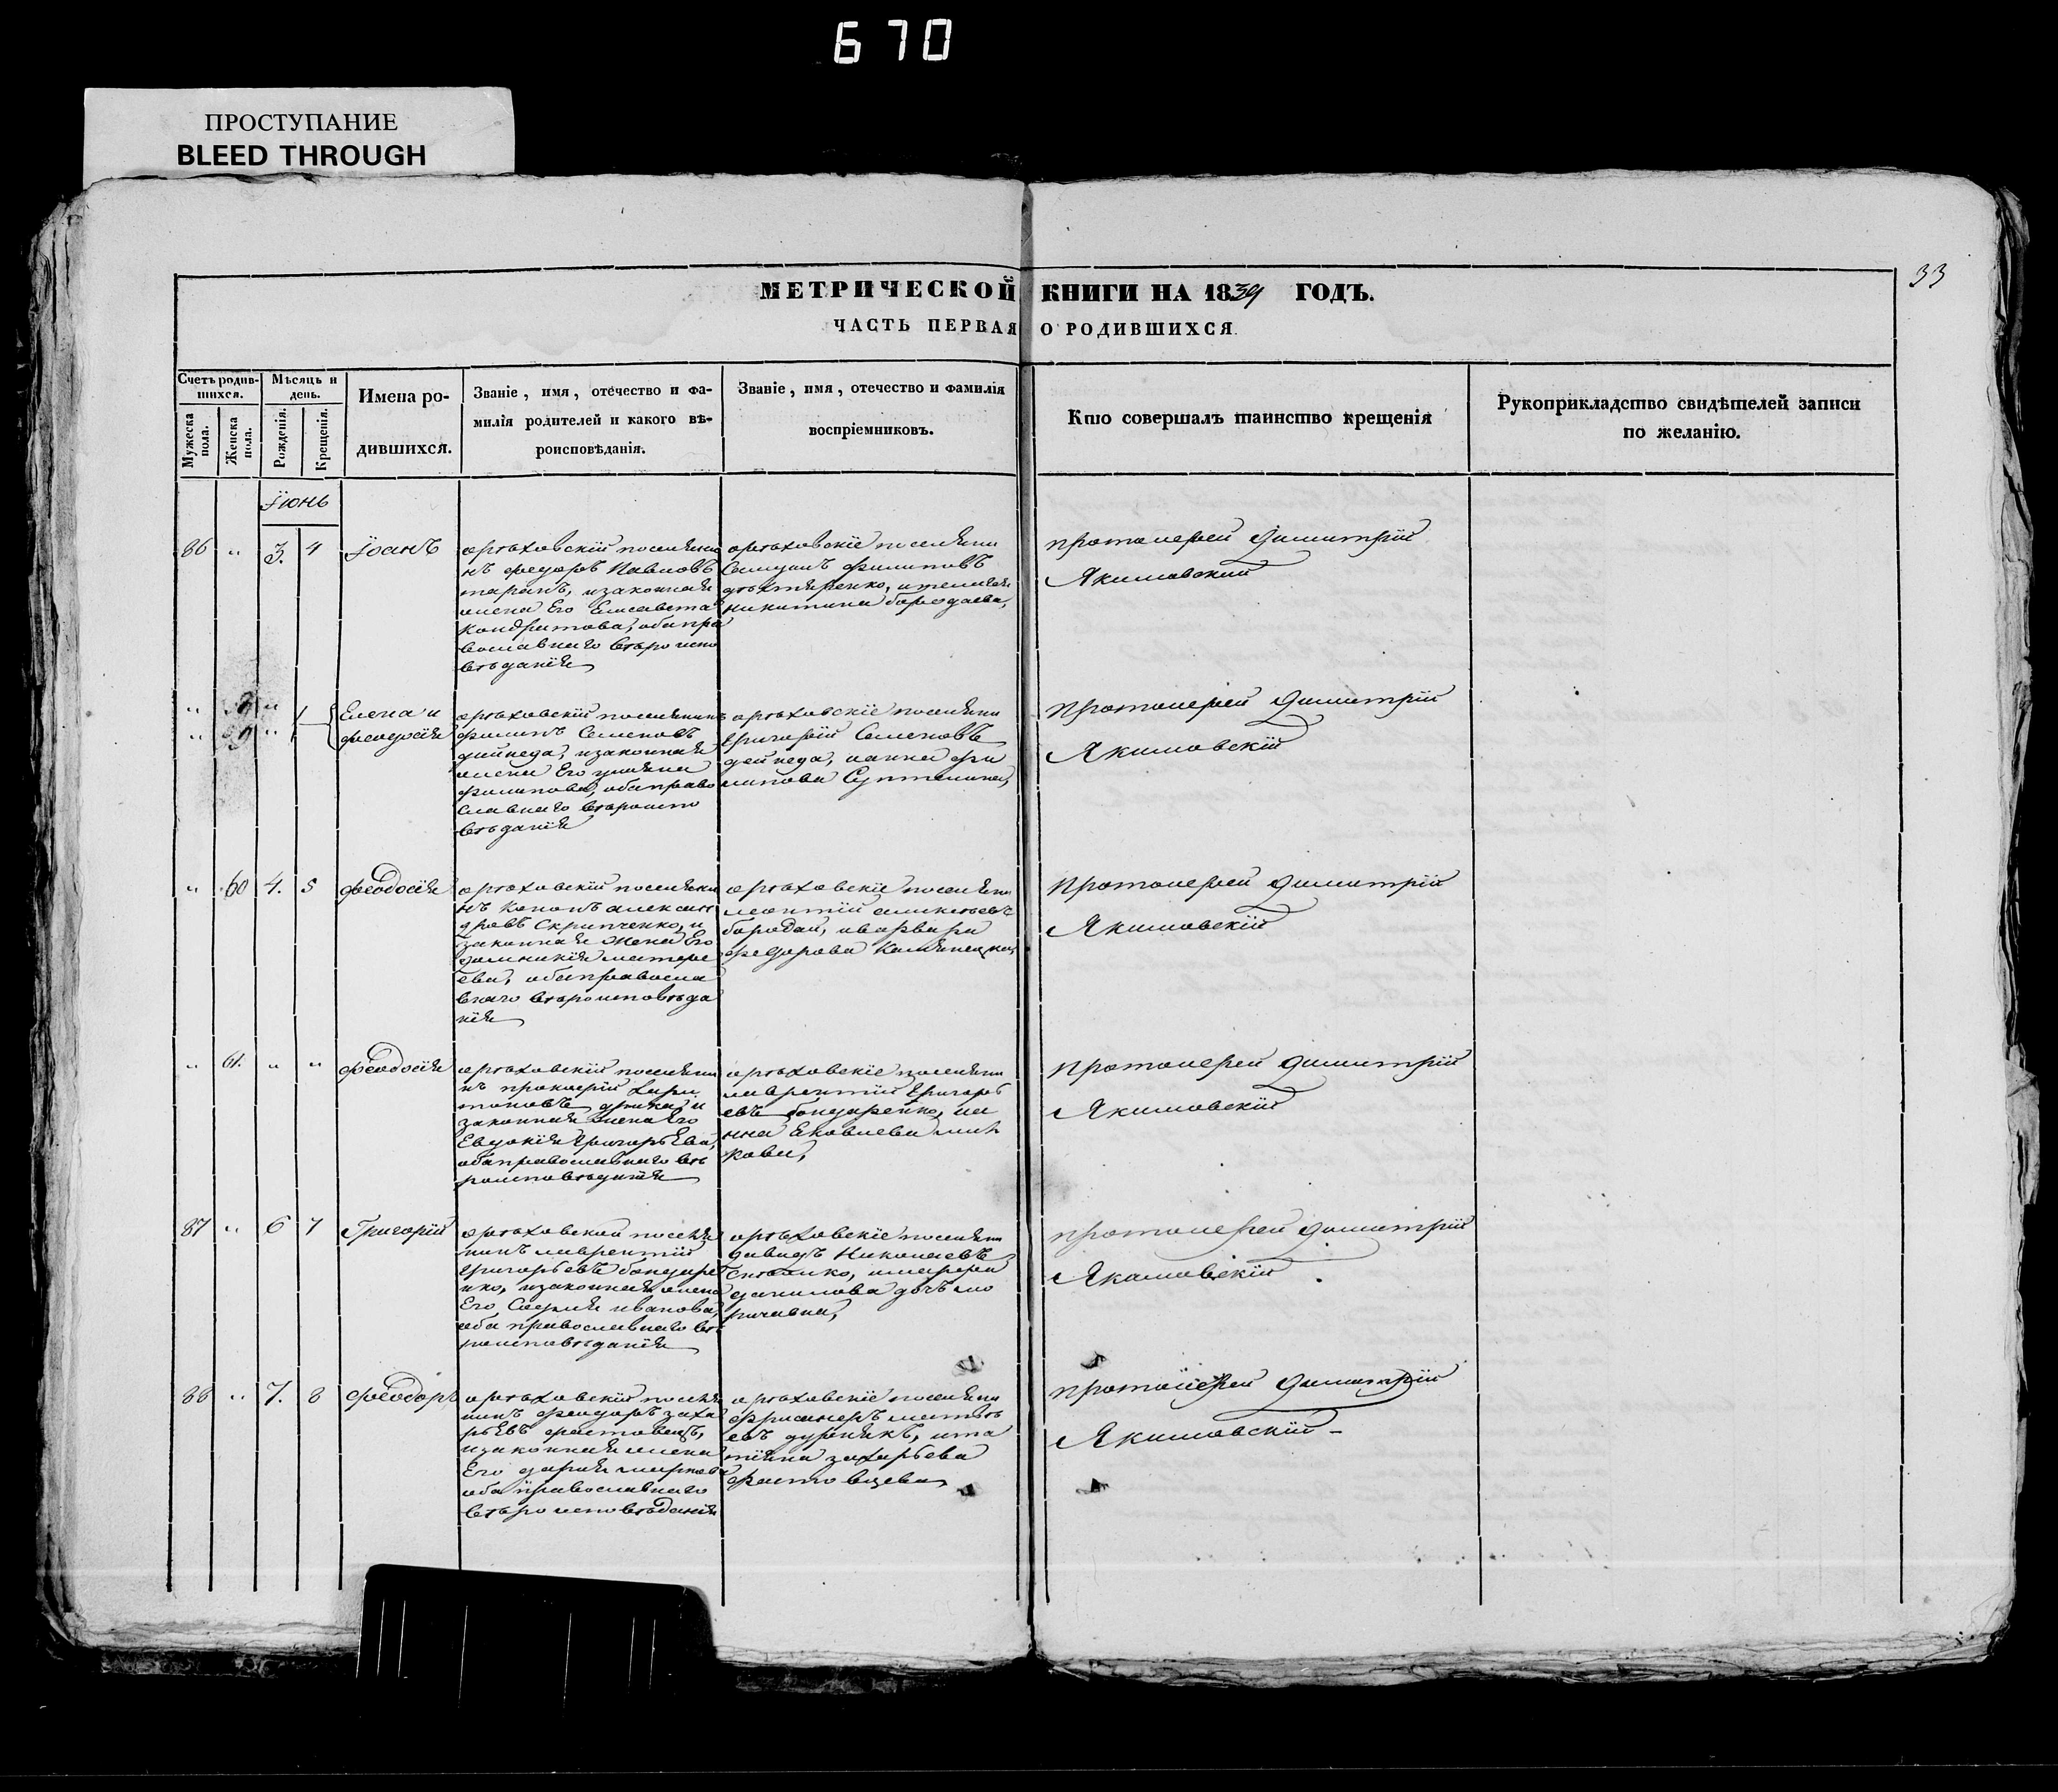 670
ПРОСТУПАНИЕ
BLEED THROUGH
33
МЕТРИЧЕСКОЙ КНИГИ НА 1839 ГОДЪ.
ЧАСТЬ ПЕРВАЯ О РОДИВШИХСЯ.
Счетъ родив-
шихся.
Мужеска пола.
Женска пола.
Мѣсяцъ и
день.
Рожденія.
Крещенія.
Имена ро-
дившихся.
Званіе, имя, отечество и фа-
милія родителей и какого вѣ-
роисповѣданія.
Званіе, имя, отечество и фамилія
воспріемниковъ.
Кто совершалъ таинство крещенія
Рукоприкладство свидѣтелей записи
по желанію.
Іюнь
86 " 3. 4 Іоанъ
орѣховскій поселяни
нъ федоръ Павловъ
таранъ, изаконная
жена Его Елисавета
Кондратова, оба пра
вославнаго вѣроиспо
вѣданія
орѣховскіе поселяни
никитина бородаева,
протоіерей Димитрій
Якимовский
Елена и
феодосія
орѣховскій поселянинъ
филипъ Семеновъ
дейнега, изаконная
жена Его
филипова, оба право
славнаго вѣроиспо
вѣданія
орѣховскіе поселяни
Григорій Семеновъ
дейнега, ианна фи
липова
протоіерей Димитрій
Якимовскій
" 60 4. 5 феодосія
орѣховскій поселяни
нъ Кононъ алексан
дровъ Скрипченко, и
законная жена Его
ева, оба правосла
внаго вѣроисповѣда
нія
орѣховскіе поселяни
бородай, иварвара
федорова
протоіерей Димитрій
Якимовскій
" 61. " " феодосія
орѣховскій поселяни
нъ прокофій Хари
тоновъ
законная жена Его
Евдокія Григорьева,
оба православнаго вѣ
роисповѣданія
орѣховскіе поселяни
лаврентій Григорь
евъ бондаренко, иа
нна Яковлева
протоіерей Димитрій
Якимовскій
87 " 6 7 Григорій
орѣховской поселя
нинъ лаврентій
Григорьевъ бондаре
нко, изаконная жена
Его Софія иванова,
оба православнаго вѣ
роисповѣданія
орѣховскіе поселяни
давидъ Николаевъ
данилова дочь
протоіерей Димитрій
Якимовскій
88 " 7. 8 феодоръ
орѣховскій поселя
нинъ феодоръ заха
рьевъ фастовецъ,
изаконная жена
Его дарія маркова
оба православнаго
вѣроисповѣданія
орѣховскіе поселяни
тіяна захарьева
фастовцева
протоіерей Димитрій
Якимовскій